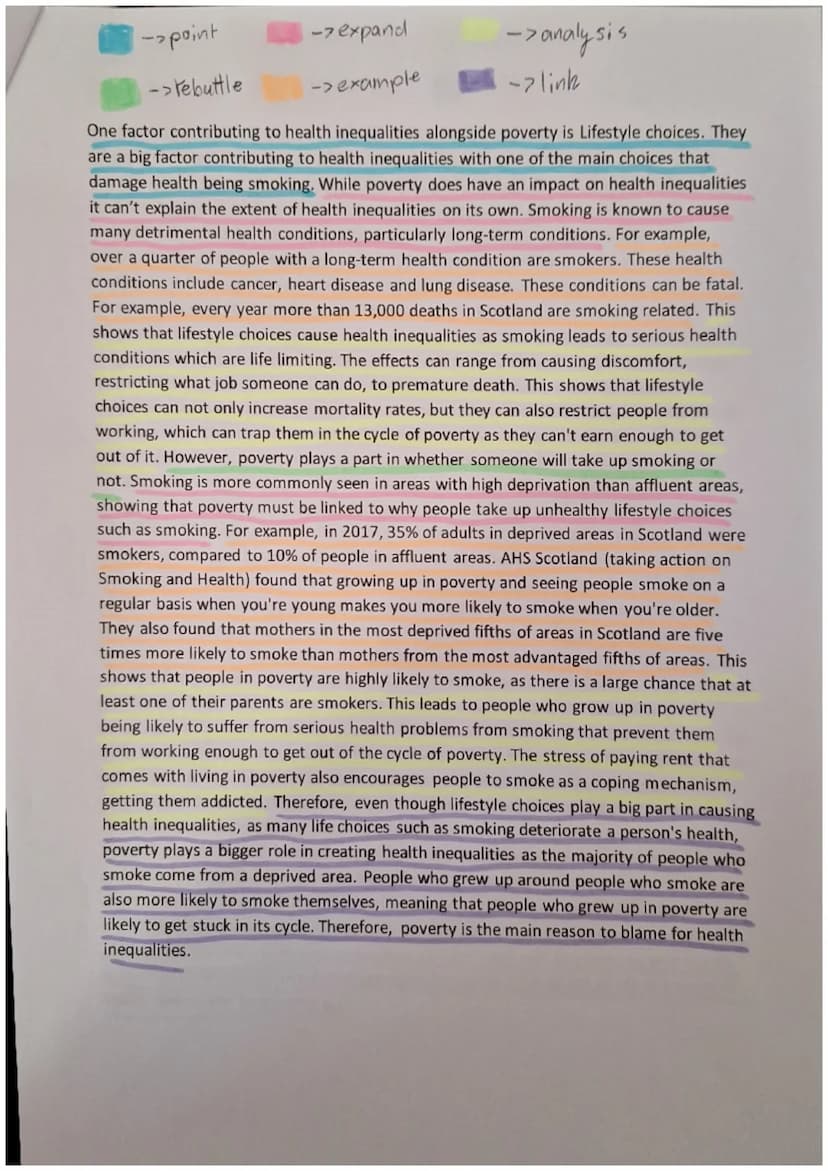 ->point ->expand ->analysis
->rebuttle ->example ->link
One factor contributing to health inequalities alongside poverty is Lifestyle choices. They
are a big factor contributing to health inequalities with one of the main choices that
damage health being smoking. While poverty does have an impact on health inequalities
it can't explain the extent of health inequalities on its own. Smoking is known to cause
many detrimental health conditions, particularly long-term conditions. For example,
over a quarter of people with a long-term health condition are smokers. These health
conditions include cancer, heart disease and lung disease. These conditions can be fatal.
For example, every year more than 13,000 deaths in Scotland are smoking related. This
shows that lifestyle choices cause health inequalities as smoking leads to serious health
conditions which are life limiting. The effects can range from causing discomfort,
restricting what job someone can do, to premature death. This shows that lifestyle
choices can not only increase mortality rates, but they can also restrict people from
working, which can trap them in the cycle of poverty as they can't earn enough to get
out of it. However, poverty plays a part in whether someone will take up smoking or
not. Smoking is more commonly seen in areas with high deprivation than affluent areas,
showing that poverty must be linked to why people take up unhealthy lifestyle choices
such as smoking. For example, in 2017, 35% of adults in deprived areas in Scotland were
smokers, compared to 10% of people in affluent areas. AHS Scotland (taking action on
Smoking and Health) found that growing up in poverty and seeing people smoke on a
regular basis when you're young makes you more likely to smoke when you're older.
They also found that mothers in the most deprived fifths of areas in Scotland are five
times more likely to smoke than mothers from the most advantaged fifths of areas. This
shows that people in poverty are highly likely to smoke, as there is a large chance that at
least one of their parents are smokers. This leads to people who grow up in poverty
being likely to suffer from serious health problems from smoking that prevent them
from working enough to get out of the cycle of poverty. The stress of paying rent that
comes with living in poverty also encourages people to smoke as a coping mechanism,
getting them addicted. Therefore, even though lifestyle choices play a big part in causing
health inequalities, as many life choices such as smoking deteriorate a person's health,
poverty plays a bigger role in creating health inequalities as the majority of people who
smoke come from a deprived area. People who grew up around people who smoke are
also more likely to smoke themselves, meaning that people who grew up in poverty are
likely to get stuck in its cycle. Therefore, poverty is the main reason to blame for health
inequalities.